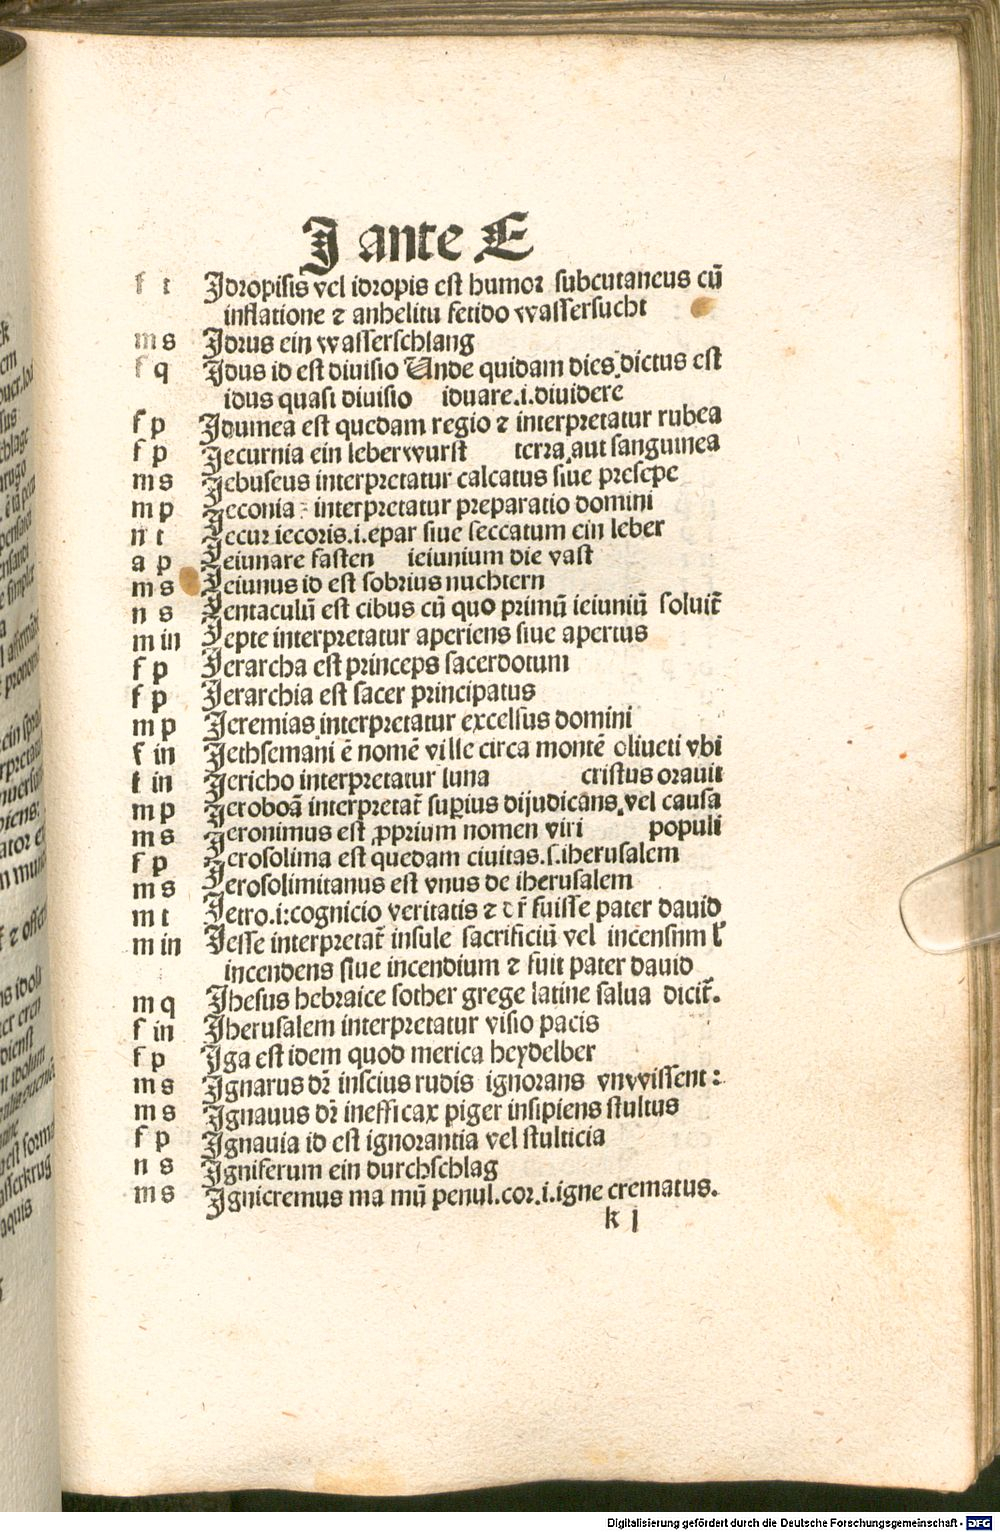 J ante E
f t Jdropisis vel idropis est humor subcutaneus cū
inflatione ⁊ anhelitu fetido wassersucht
m s Jdrus ein wasserschlang
f q Jdus id est diuisio Unde quidam dies dictus est
idus quasi diuisio iduare.i.diuidere
f p Jdumea est quedam regio ⁊ interpretatur rubea
f p Jecurnia ein leberwurst terra aut sanguinea
m s Jebuseus interpretatur calcatus siue presepe
m p Jeconia interpretatur preparatio domini
n t Jecur iecoris.i.epar siue seccatum ein leber
a p Jeiunare fasten ieiunium die vast
m s Jeiunus id est sobrius nuchtern
n s Jentaculū est cibus cū quo primū ieiuniū soluit̄
m in Jepte interpretatur aperiens siue apertus
f p Jerarcha est princeps sacerdotum
f p Jerarchia est sacer principatus
m p Jeremias interpretatur excelsus domini
f in Jethsemani ē nomē ville circa montē oliueti vbi
f in Jericho interpretatur luna cristus orauit
m p Jeroboā interpretat̄ supius dijudicans.vel causa
m s Jeronimus est ꝓprium nomen viri populi
f p Jerosolima est quedam ciuitas.s.iherusalem
m s Jerosolimitanus est vnus de iherusalem
m t Jetro.i:cognicio veritatis ⁊ dr̄ fuisse pater dauid
m in Jesse interpretat̄ insule sacrificiū vel incensnm l'
incendens siue incendium ⁊ fuit pater dauid
m q Jhesus hebraice sother grege latine salua dicit̄.
f in Jherusalem interpretatur visio pacis
f p Jga est idem quod merica heydelber
m s Jgnarus dr̄ inscius rudis ignorans vnwissent:
m s Jgnauus dr̄ inefficax piger insipiens stultus
f p Jgnauia id est ignorantia vel stulticia
n s Jgniferum ein durchschlag
m s Jgnicremus ma mū penul.cor.i.igne crematus.
k j
Digitalisierung gefördert durch die Deutsche Forschungsgemeinschaft - DFG